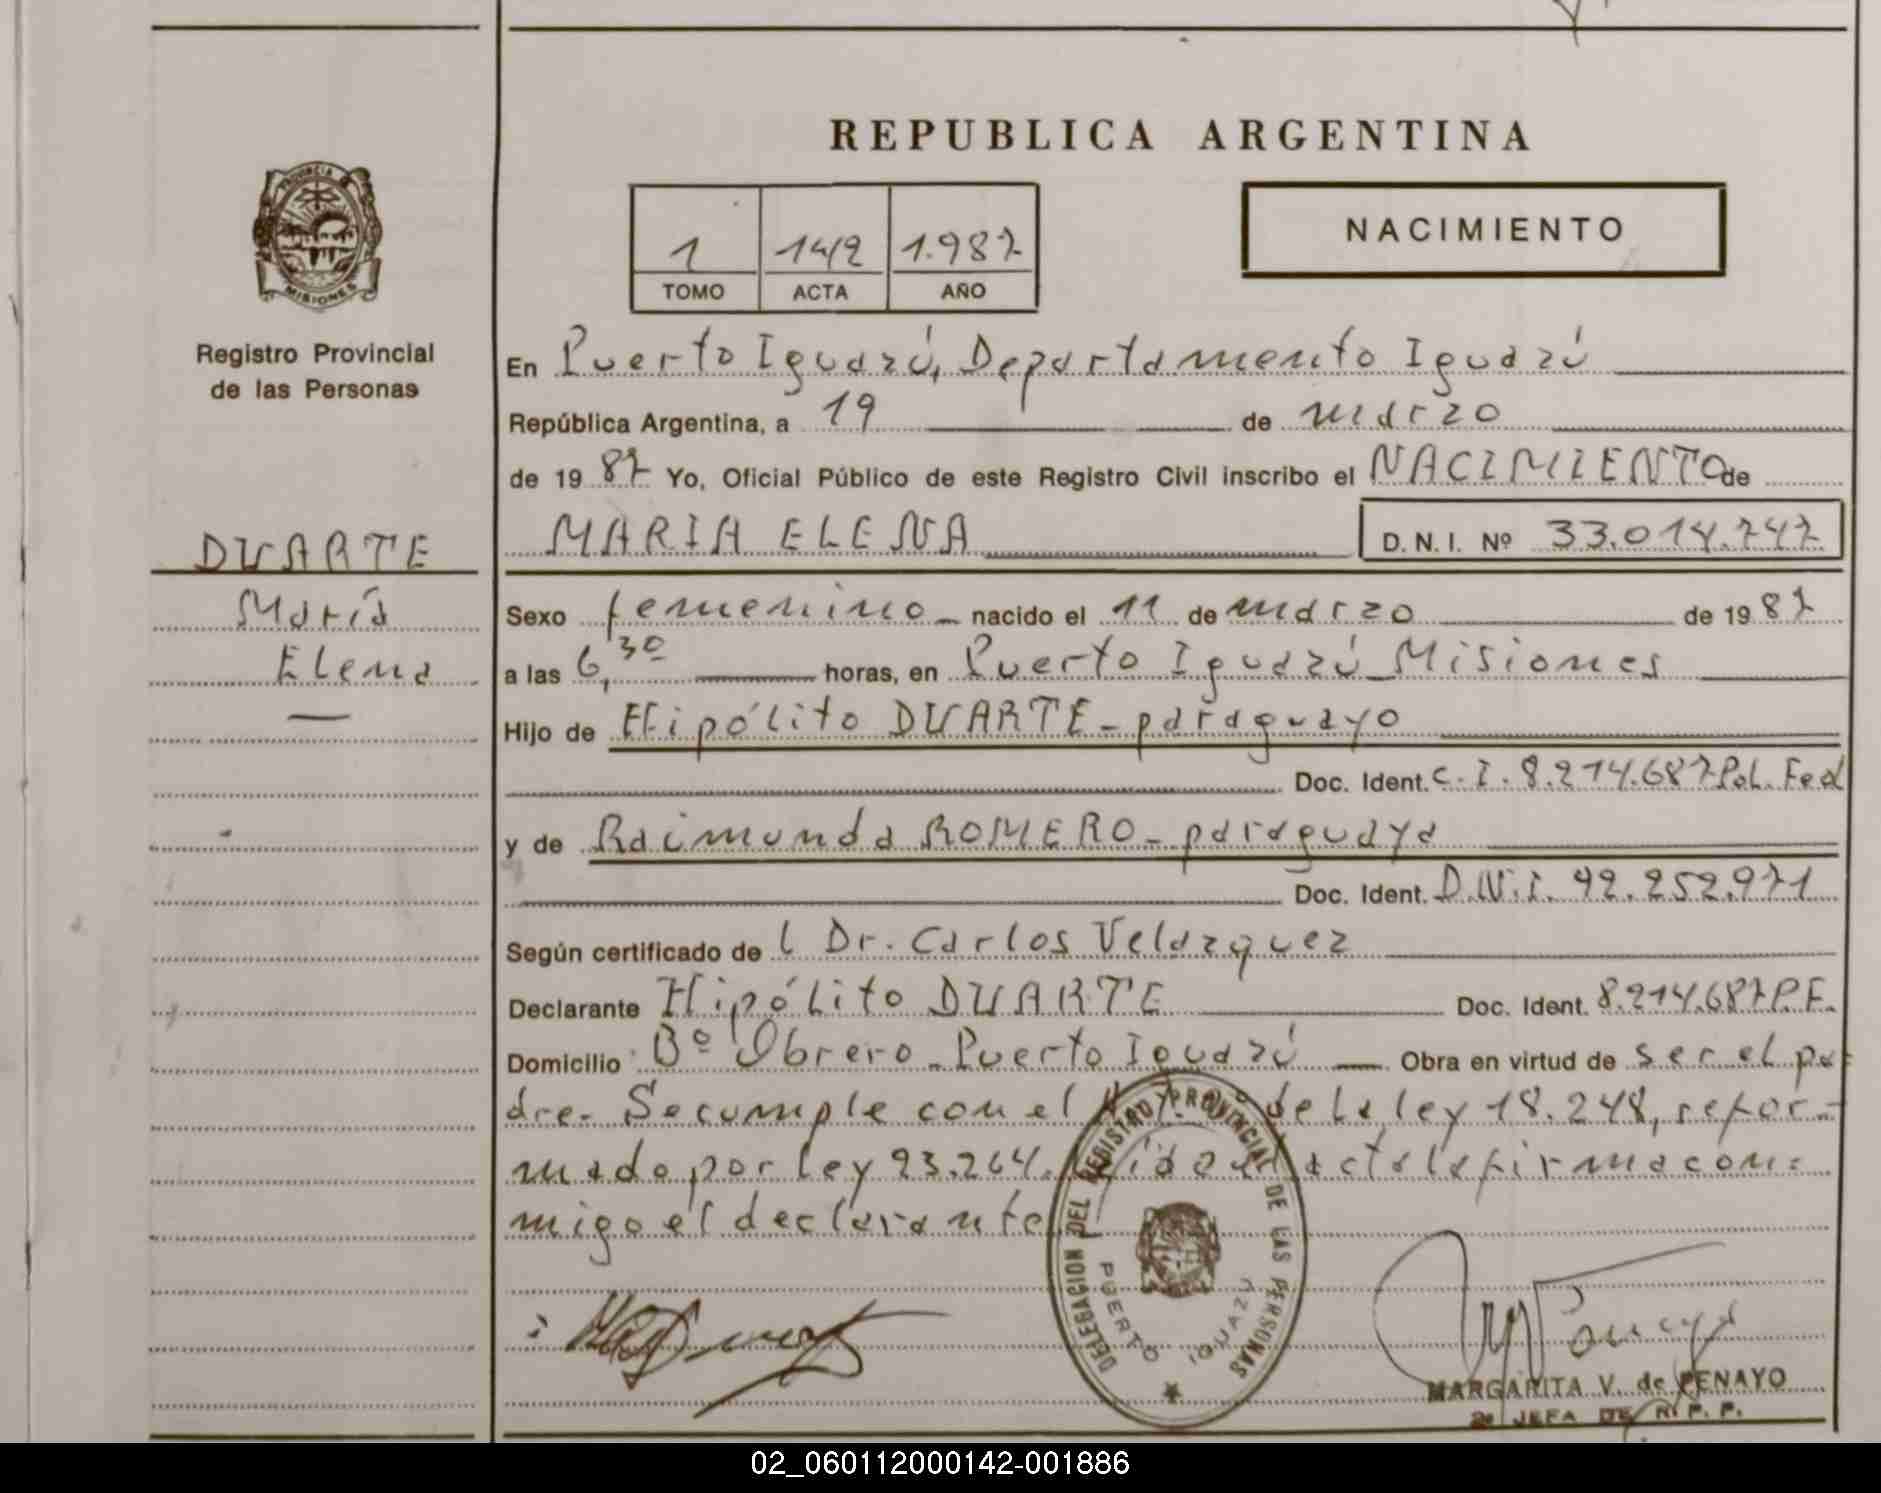 REPUBLICA ARGENTINA
PROVINCIA D
MISIONES
Registro Provincial
de las Personas
1 142 1.987
TOMO ACTA AÑO
NACIMIENTO
En Puerto Iguazú, Departamento Iguazú
República Argentina, a 19 de marzo
de 19 87 Yo, Oficial Público de este Registro Civil inscribo el NACIMIENTO de
DUARTE
María
Elena
MARIA ELENA D. N. I. Nº 33.014.747
Sexo femenino nacido el 11 de marzo de 19 87
a las 6,30 horas, en Puerto Iguazú Misiones
Hijo de Hipólito DUARTE - paraguayo
Doc. Ident. C. I. 8.214.687 Pol. Fed
y de Raimunda ROMERO - paraguaya
Doc. Ident. D.N.I. 92.252.971
Según certificado de l Dr. Carlos Velazquez
Declarante Hipólito DUARTE Doc. Ident. 8.214.687 P.F.
Domicilio Bº Obrero - Puerto Iguazú Obra en virtud de ser el pa-
dre. Se cumple con el de la ley 18.248, refor-
mado por ley 23.264. acta la firma con-
migo el declarante
DELEGACION DEL REGISTRO PROVINCIAL DE LAS PERSONAS
PUERTO IGUAZU
MARGARITA V. de PENAYO
2º JEFA DE R. P. P.
02_060112000142-001886